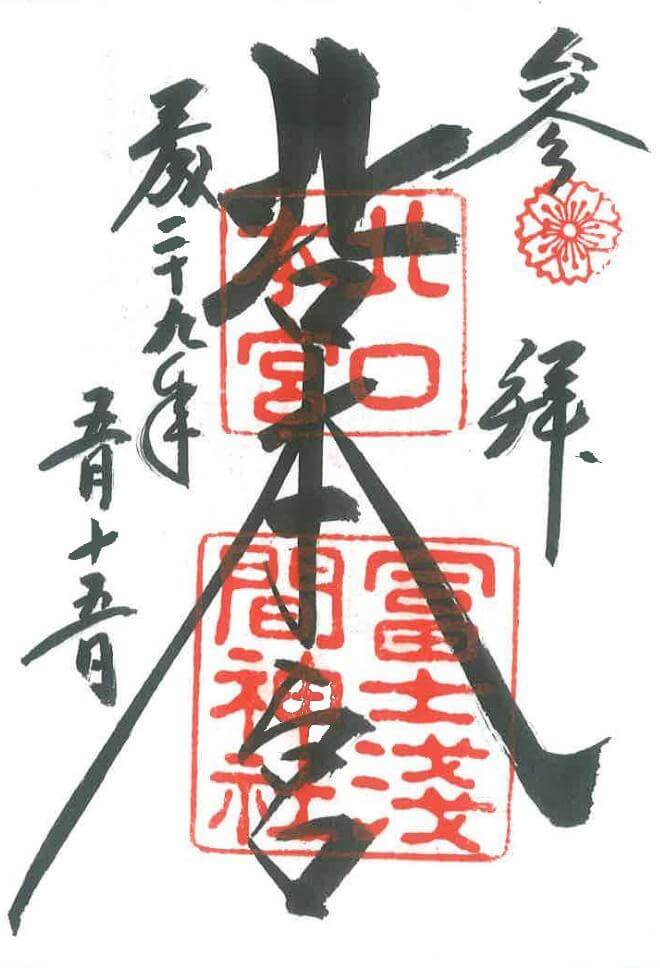 参拝
北口本宮
二十九年
五月十五日
北口
本宮
冨士淺
間神社